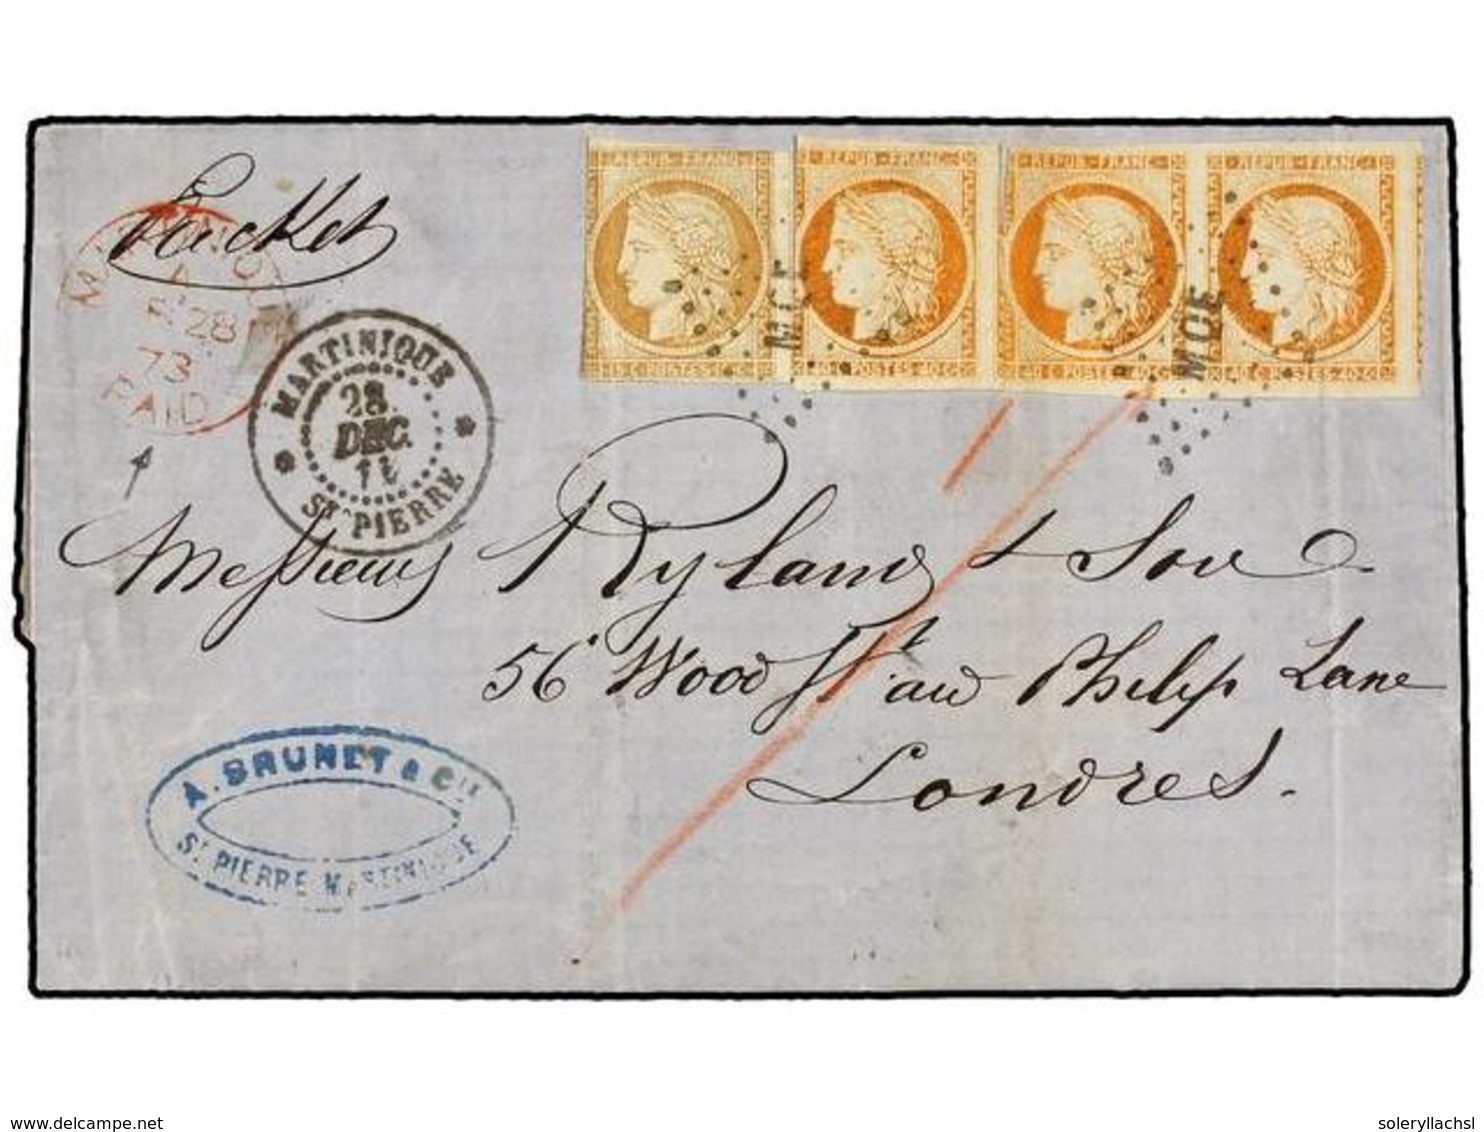 Packet
REPUB. FRANC. REPUB. FRANC. REPUB. FRANC. REPUB. FRANC.
15 C. POSTES 15 C. 40 C. POSTES 40 C. 40 C. POSTES 40 C. 40 C. POSTES 40 C.
MQE MQE
28
73
PAID
MARTINIQUE
28.
DEC.
ST PIERRE
Messieurs Rylands & Son
56 Wood St. and Philip Lane
Londres.
A. BRUNET & CIE
ST PIERRE MARTINIQUE
www.delcampe.net
soleryllachsl